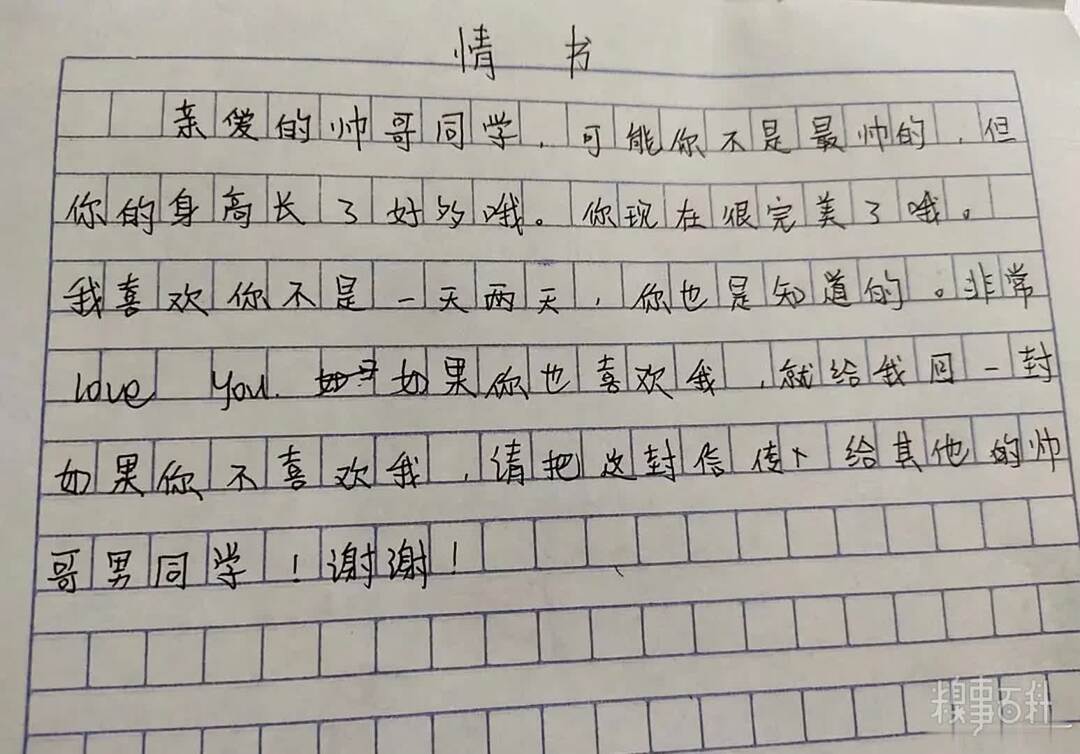 情 书
亲爱的帅哥同学,可能你不是最帅的,但
你的身高长了好多哦。你现在很完美了哦。
我喜欢你不是一天两天,你也是知道的。非常
love you. 如果你也喜欢我,就给我回一封
如果你不喜欢我,请把这封信传下给其他的帅
哥男同学!谢谢!
糗事百科